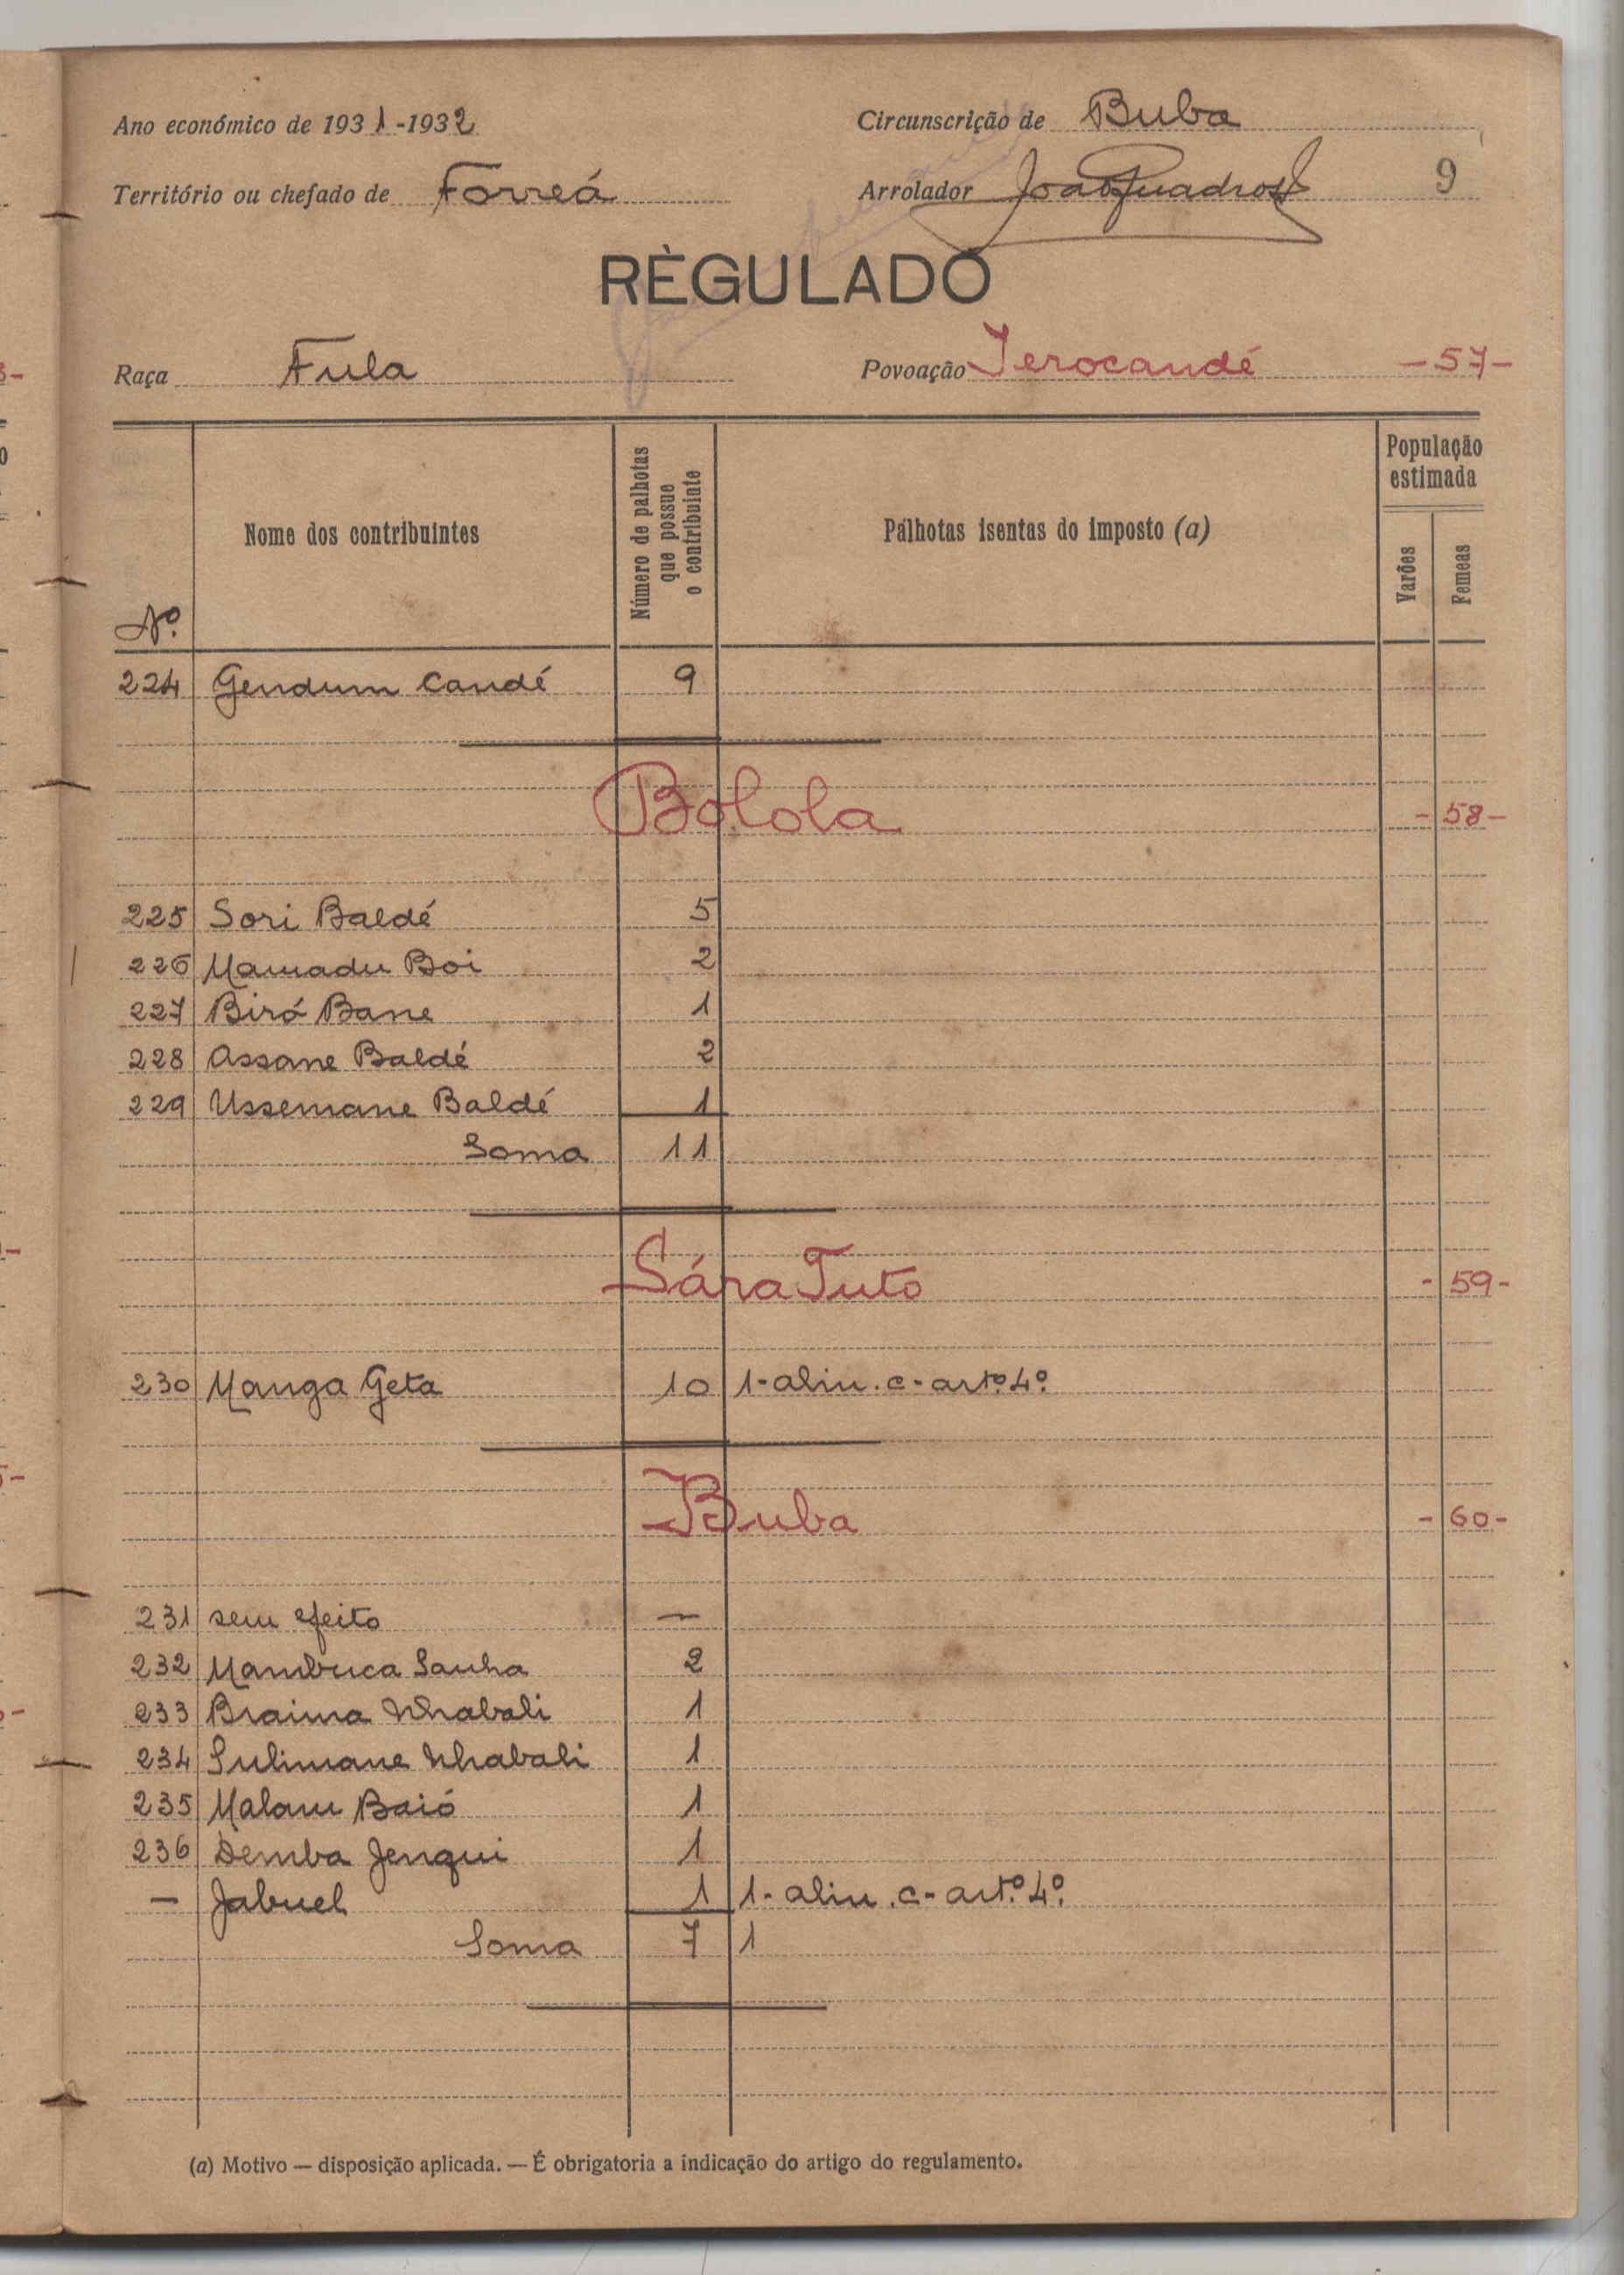 Ano económico de 1931-1932 Circunscrição de Buba
Território ou chefado de Forreá Arrolador João Quadros 9
RÈGULADO
Raça Fula Povoação Jerocandé -57-
Nº Nome dos contribuintes Número de palhotas que possue o contribuinte Palhotas isentas do imposto (a) População estimada Varões Femeas
224 Gendum Candé 9
Bolola -58-
225 Sori Baldé 5
226 Mamadu Boi 2
227 Biró Bane 1
228 Assane Baldé 2
229 Ussemane Baldé 1
Soma 11
Sára Tuto -59-
230 Manga Geta 10 1-alin. c-artº 4º
Buba -60-
231 sem efeito —
232 Mambuca Sanha 2
233 Braima Nhabali 1
234 Sulimane Nhabali 1
235 Malam Baió 1
236 Demba Jenqui 1
— Jabuel 1 1-alin. c-artº 4º
Soma 7 1
(a) Motivo — disposição aplicada. — É obrigatoria a indicação do artigo do regulamento.